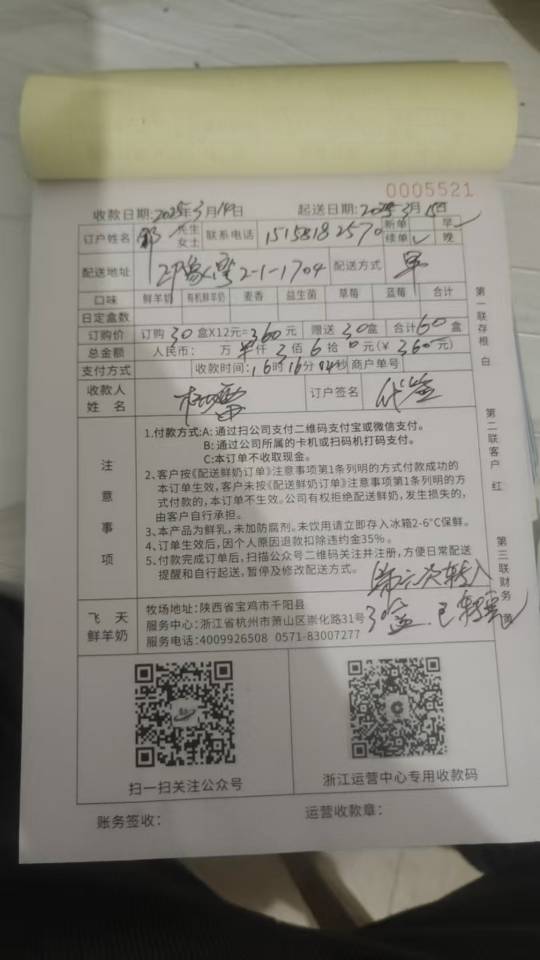 0005521
收款日期:2025年3月14日 起送日期:2025年3月15日
订户姓名 郭 先生 女士 联系电话 15158182570 新单 续单✓ 早✓ 晚
配送地址 印象湾2-1-1704 配送方式 早
口味 鲜羊奶 有机鲜羊奶 麦香 益生菌 草莓 蓝莓 合计
日定盒数
订购价 订购30盒X12元=360元 赠送30盒 合计60盒
总金额 人民币: 万 仟3佰6拾0元(¥360元)
支付方式 收款时间:16时16分 秒 商户单号
收款人姓名 订户签名 代签
注意事项
1.付款方式:A:通过扫公司支付二维码支付宝或微信支付。
B:通过公司所属的卡机或扫码机打码支付。
C:本订单不收取现金。
2、客户按《配送鲜奶订单》注意事项第1条列明的方式付款成功的
本订单生效,客户未按《配送鲜奶订单》注意事项第1条列明的方
式付款的,本订单不生效。公司有权拒绝配送鲜奶,发生损失的,
由客户自行承担。
3、本产品为鲜乳,未加防腐剂。未饮用请立即存入冰箱2-6°C保鲜。
4、订单生效后,因个人原因退款扣除违约金35%。
5、付款完成订单后,扫描公众号二维码关注并注册,方便日常配送
提醒和自行起送,暂停及修改配送方式。
第二次转入
30盒 已
飞天
鲜羊奶
牧场地址:陕西省宝鸡市千阳县
服务中心:浙江省杭州市萧山区崇化路31号
服务电话:4009926508 0571-83007277
扫一扫关注公众号
浙江运营中心专用收款码
账务签收: 运营收款章:
第一联存根 白
第二联客户 红
第三联财务 黄